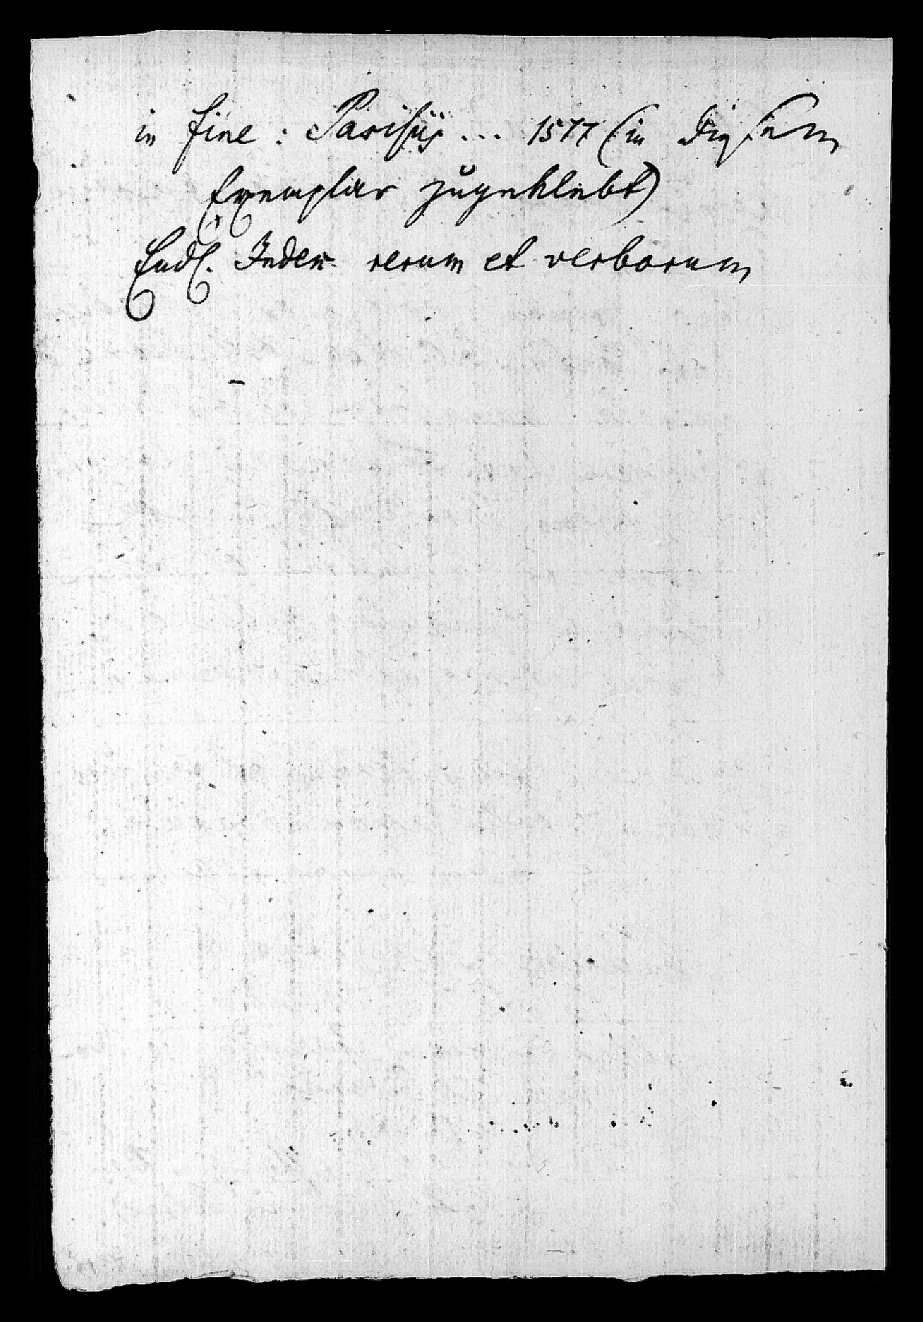 in fine : Parisijs ... 1577 (in diesem
Exemplar zugeklebt)
Endl. Index rerum et verborum